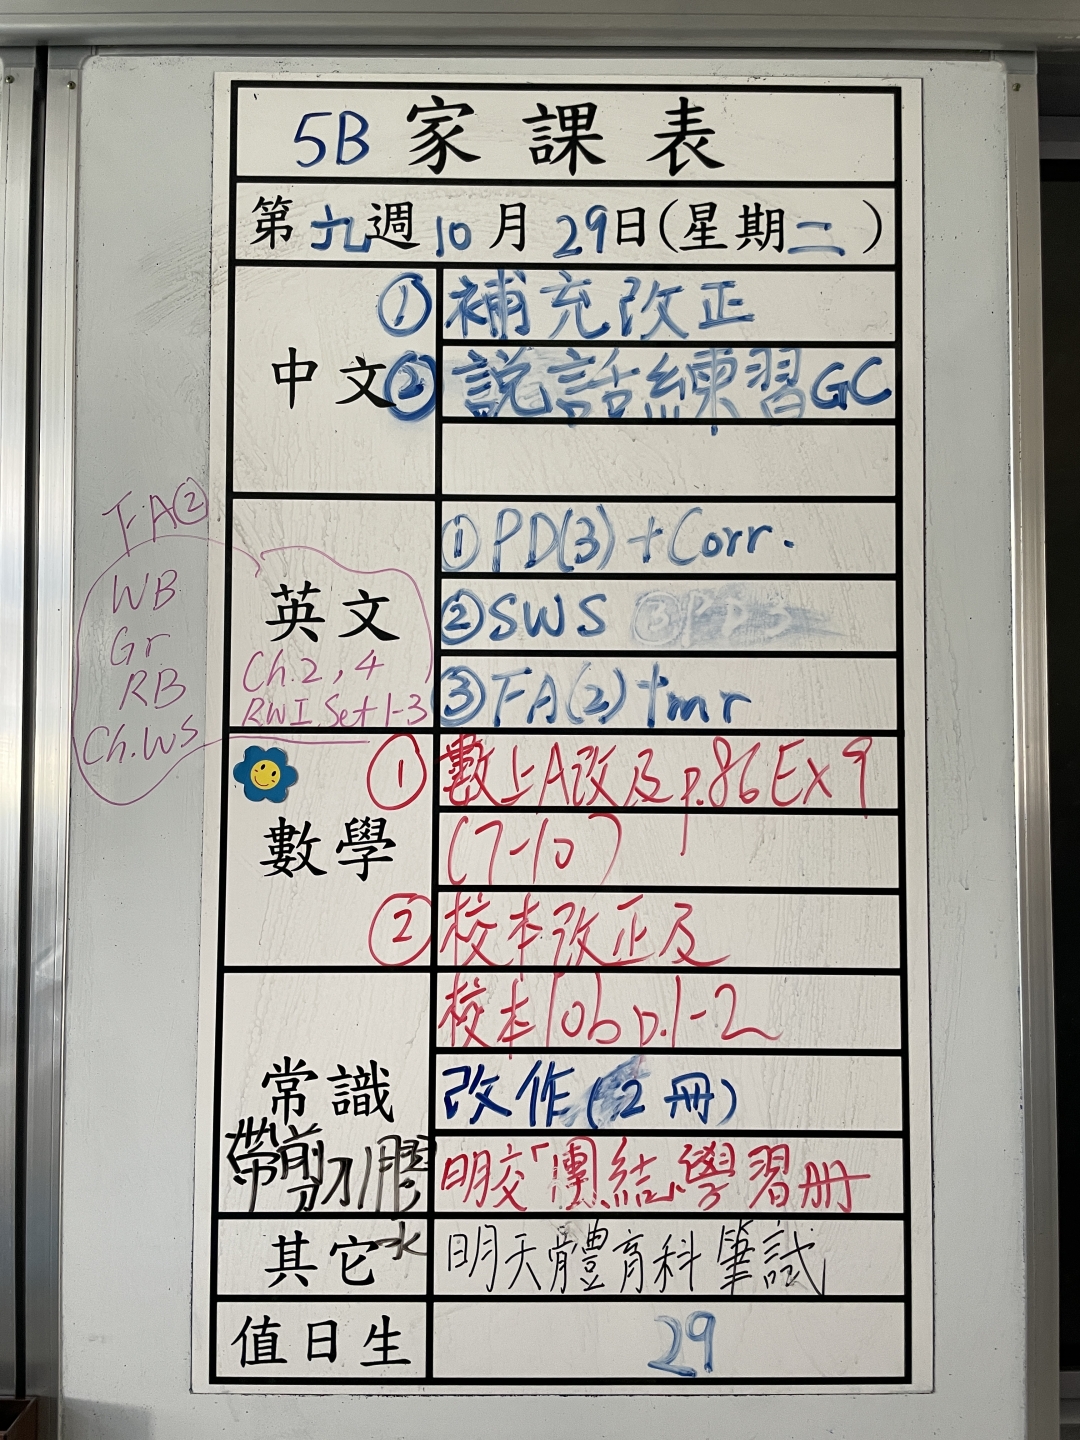 5B 家課表
第九週10月29日(星期二)
中文
① 補充改正
② 説話練習GC
英文
① PD(3) + Corr.
② SWS ③PD3
③ FA(2) tmr
FA②
WB
Gr
RB
Ch.WS
Ch.2, 4
RWI Set 1-3
數學
① 數上A改及p.86 Ex 9
(7-10)
② 校本改正及
校本10b p.1-2
常識
改作(2冊)
帶剪刀膠水
明交「團結」學習册
其它
明天體育科筆試
值日生
29